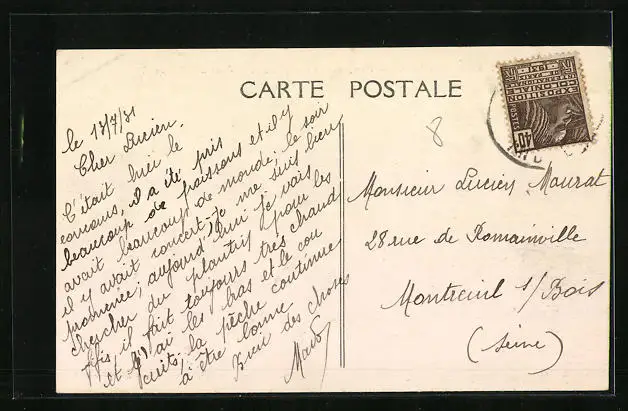 CARTE POSTALE
le 13/7/31
Cher Lucien,
C'était hier le
concours, il a été pris
beaucoup de poissons et il y
avait beaucoup de monde; le soir
il y avait concert. je me suis bien
promenée; aujourd'hui je vais
chercher du plantif pour les
il fait toujours très chaud
et j'ai les bras et le cou
cuits; la pêche continue
à être bonne.
Bien des choses
8
Monsieur Lucien Maurat
28 rue de Romainville
Montreuil s/Bois
(Seine)
POSTES
40c